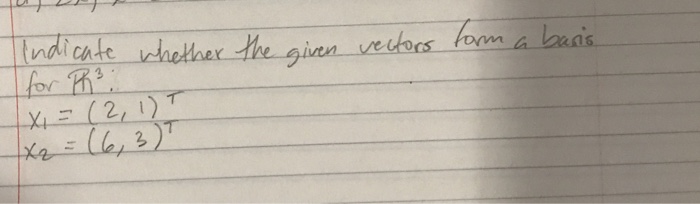 Indicate whether the given vectors form a basis
for ℝ³:
x₁ = (2, 1)ᵀ
x₂ = (6, 3)ᵀ